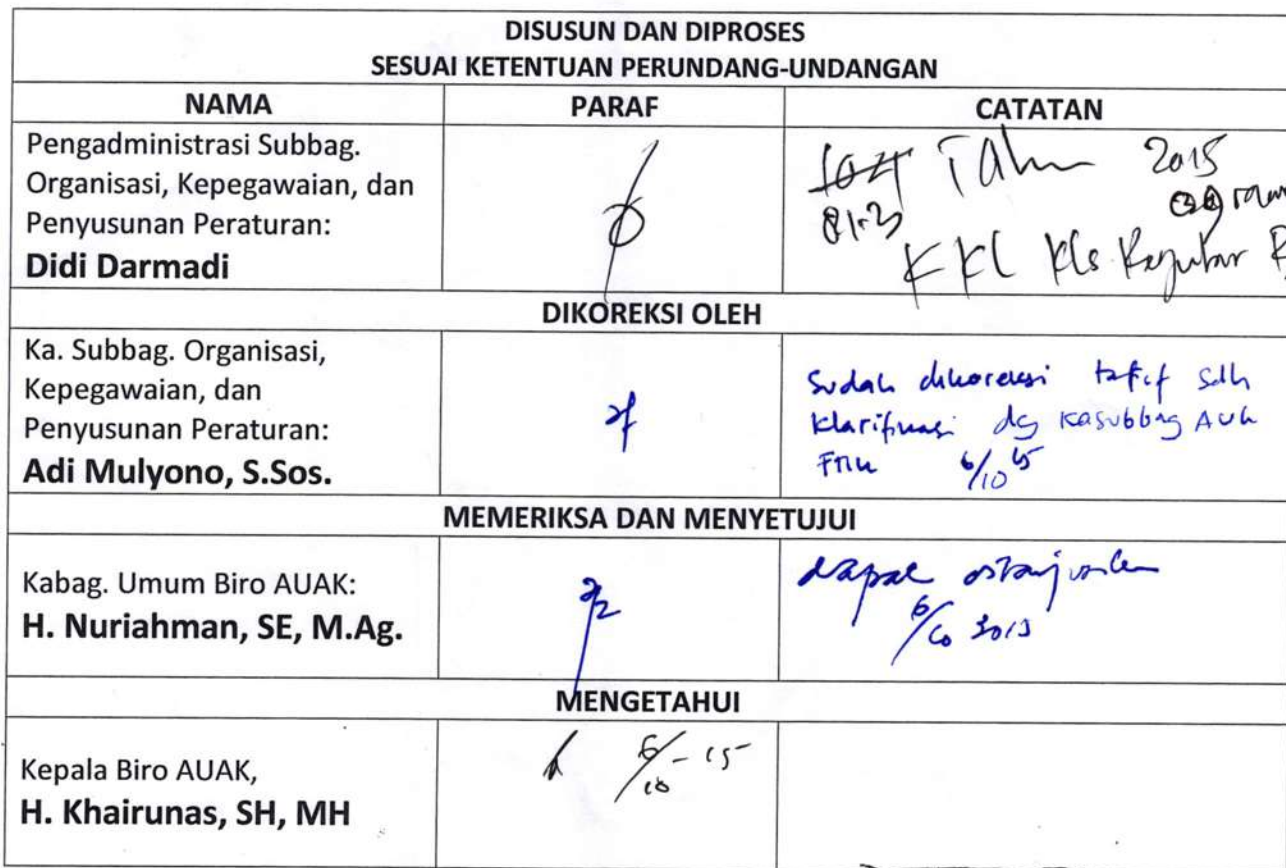 DISUSUN DAN DIPROSES
SESUAI KETENTUAN PERUNDANG-UNDANGAN
NAMA PARAF CATATAN
Pengadministrasi Subbag.
Organisasi, Kepegawaian, dan
Penyusunan Peraturan:
Didi Darmadi
Tahun 2015
KKL Kls
DIKOREKSI OLEH
Ka. Subbag. Organisasi,
Kepegawaian, dan
Penyusunan Peraturan:
Adi Mulyono, S.Sos.
Sudah dikoreksi sdh
klarifikasi dg Kasubbag
6/10 15
MEMERIKSA DAN MENYETUJUI
Kabag. Umum Biro AUAK:
H. Nuriahman, SE, M.Ag.
dapat
MENGETAHUI
Kepala Biro AUAK,
H. Khairunas, SH, MH
6/10 - 15